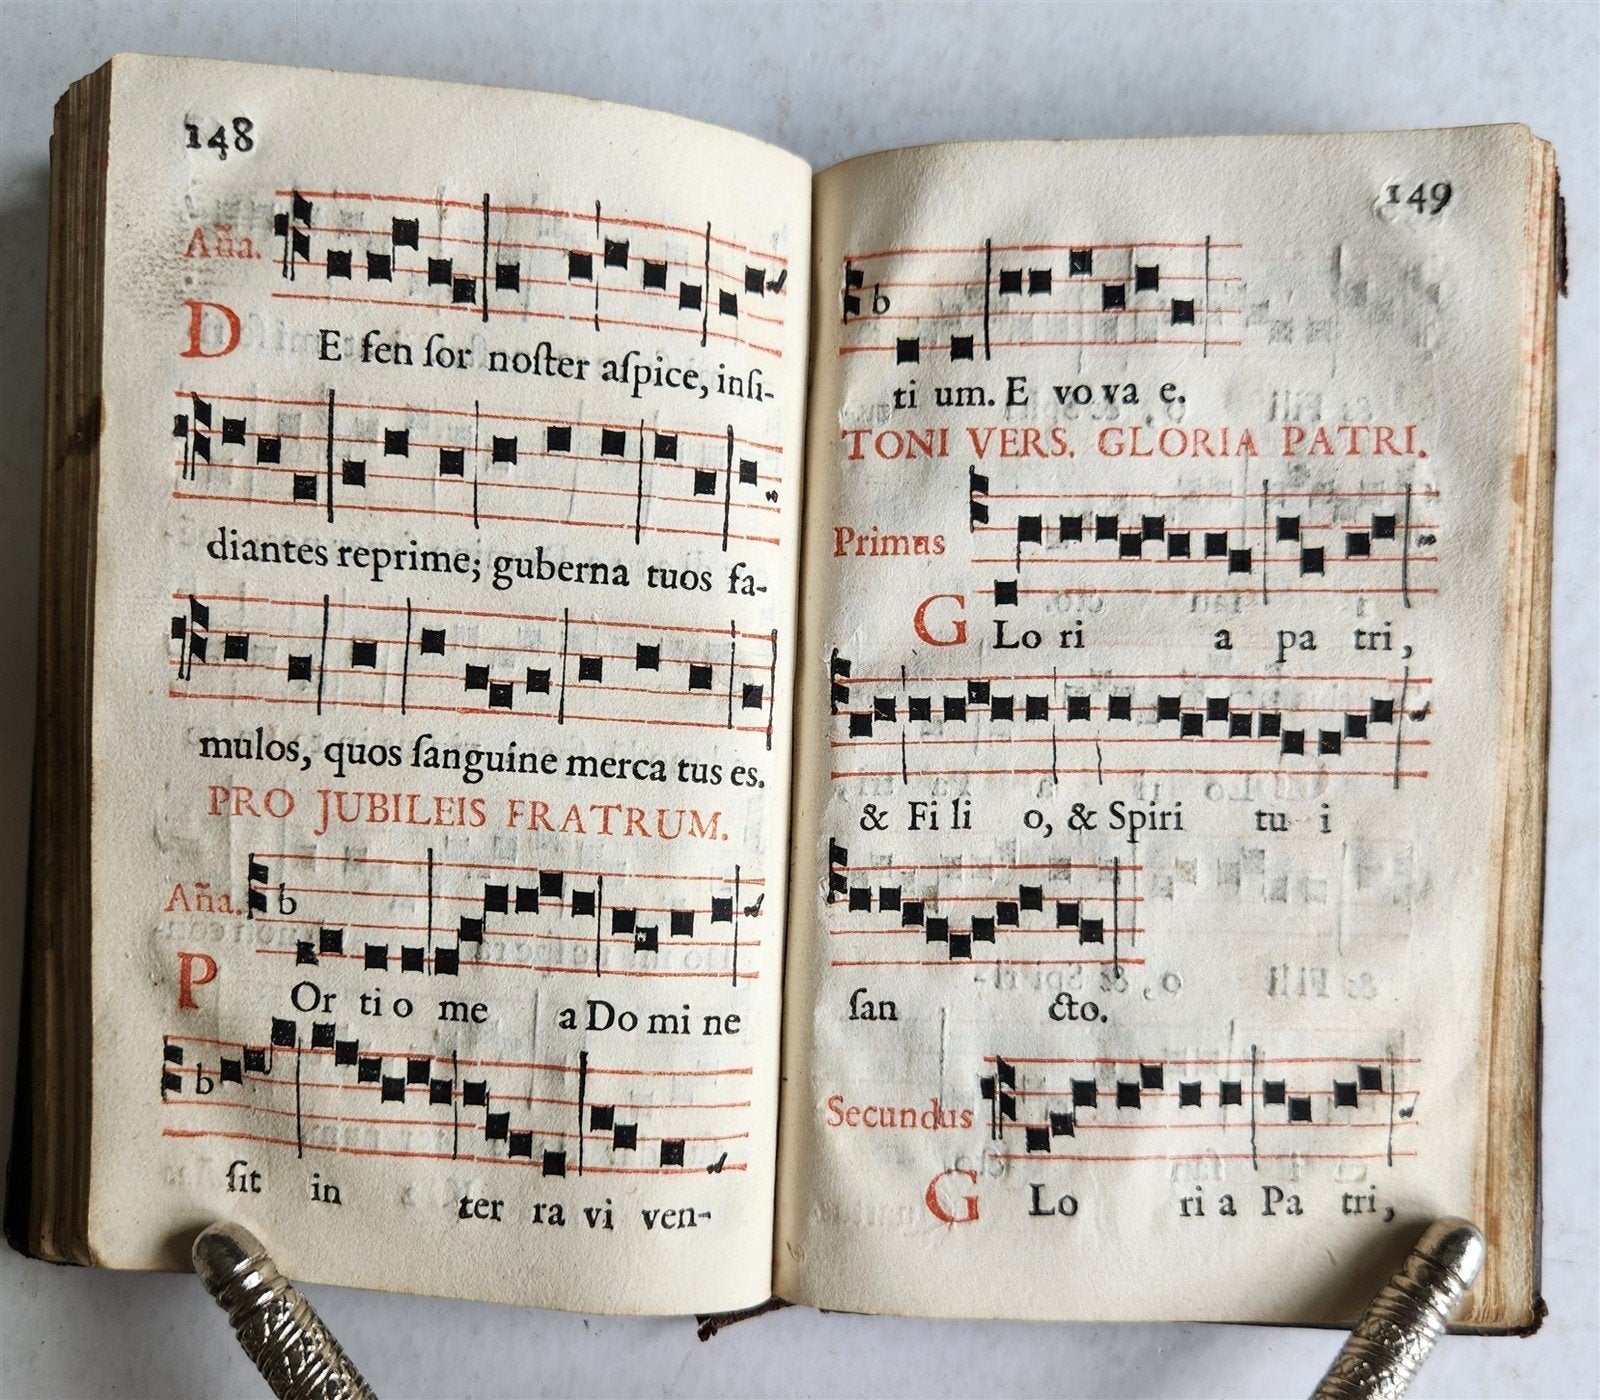 148
Aña.
DE fen ſor noſter aſpice, inſi-
diantes reprime; guberna tuos fa-
mulos, quos ſanguine merca tus es.
PRO JUBILEIS FRATRUM.
Aña. b
POr ti o me a Do mi ne
b
ſit in ter ra vi ven-
149
b
ti um. E vo va e.
TONI VERS. GLORIA PATRI.
Primus
GLo ri a pa tri,
& Fi li o, & Spiri tu i
ſan cto.
Secundus
GLo ri a Pa tri,